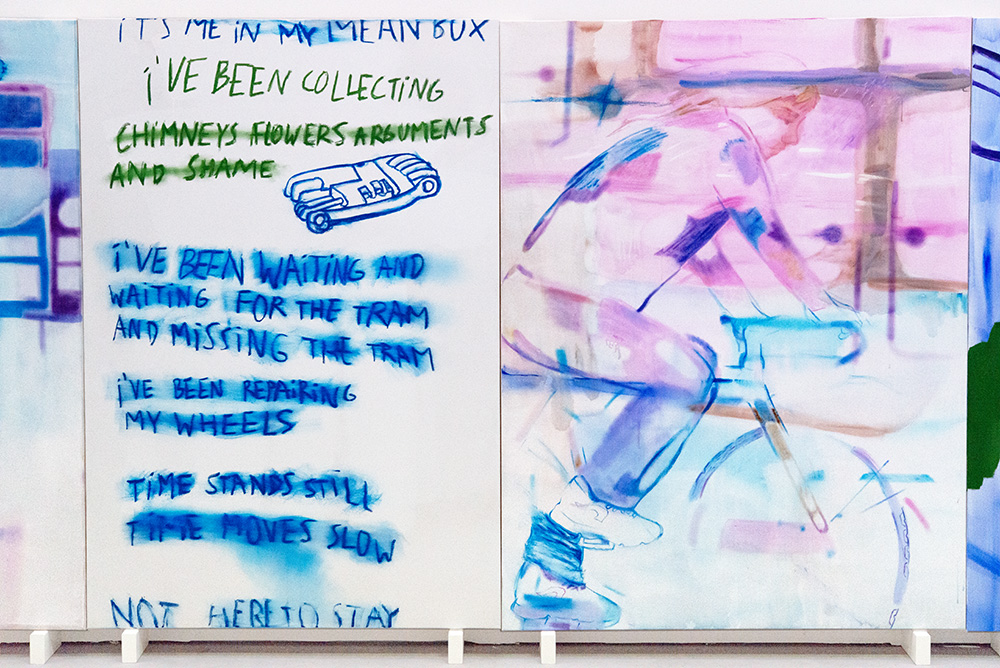 iT'S ME iN MY MEAN BOX
i'VE BEEN COLLECTiNG
CHiMNEYS FLOWERS ARGUMENTS
AND SHAME
i'VE BEEN WAiTiNG AND
WAiTiNG FOR THE TRAM
AND MiSSiNG THE TRAM
i'VE BEEN REPAiRiNG
MY WHEELS
TiME STANDS STiLL
TiME MOVES SLOW
NOT HERE TO STAY